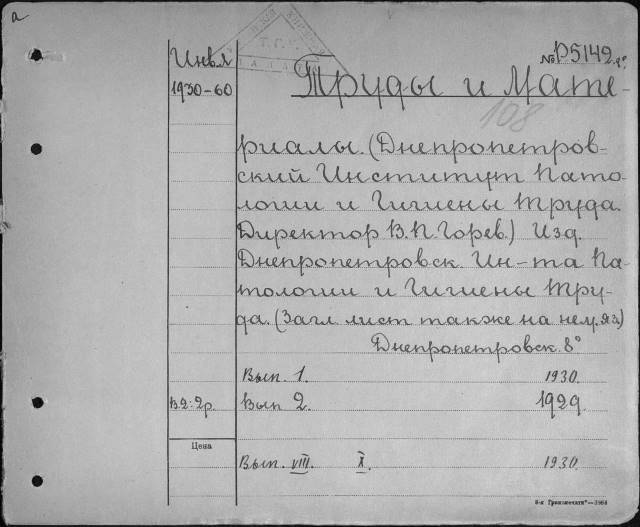 а
Инв.
№ P5142.
1930-60
Труды и Мате-
108
риалы. (Днепропетров-
ский Институт Пато-
логии и Гигиены Труда.
Директор В.П. Горев.) Изд.
Днепропетровск. Ин-та Па-
тологии и Гигиены Тру-
да. (Загл. лист также на нем. яз.)
Днепропетровск. 8°
Вып. 1. 1930.
В.2: 2р. Вып 2. 1929.
Цена
Вып. VIII. X. 1930.